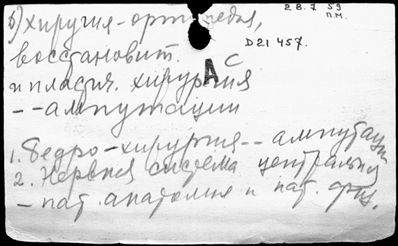 28.7 59
П.М.
Б) Хирургия - ортопедия,
Д21457.
восстановит.
и пластич. хирургия
АС
-- ампутации
1. Бедро - хирургия -- ампутации
2. Нервная система центральная
- пат. анатомия и пат. физ.